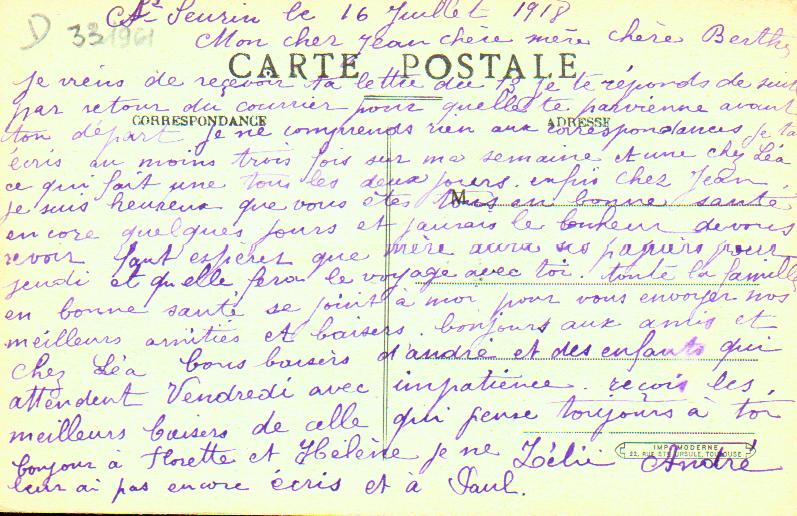 St Seurin le 16 Juillet 1918
D 33 1961
Mon cher Jean chère mère chère Berthe
CARTE POSTALE
je viens de reçevoir ta lettre du 13 je te réponds de suite
par retour du courrier pour quelle te parvienne avant
CORRESPONDANCE
ADRESSE
ton départ je ne comprends rien aux correspondances je ta
écris au moins trois fois sur ma semaine et une chez Léa
ce qui fait une tous les deux jours. enfin cher Jean
M
je suis heureux que vous êtes tous en bonne santé
encore quelques jours et jaurais le bonheur devous
revoir faut espérer que mère aura ses papiers pour
jeudi et quelle fera le voyage avec toi. toute la famille
en bonne santé se joint à moi pour vous envoyer nos
meilleurs amitiés et baisers. bonjours aux amis et
chez Léa bons baisers d'andré et des enfants qui
attendent Vendredi avec impatience. reçois les
meilleurs baisers de celle qui pense toujours à toi
bonjour à Florette et Hélène je ne Zélie André
leur ai pas encore écris et à Paul.
IMP. MODERNE
22, RUE STE URSULE, TOULOUSE